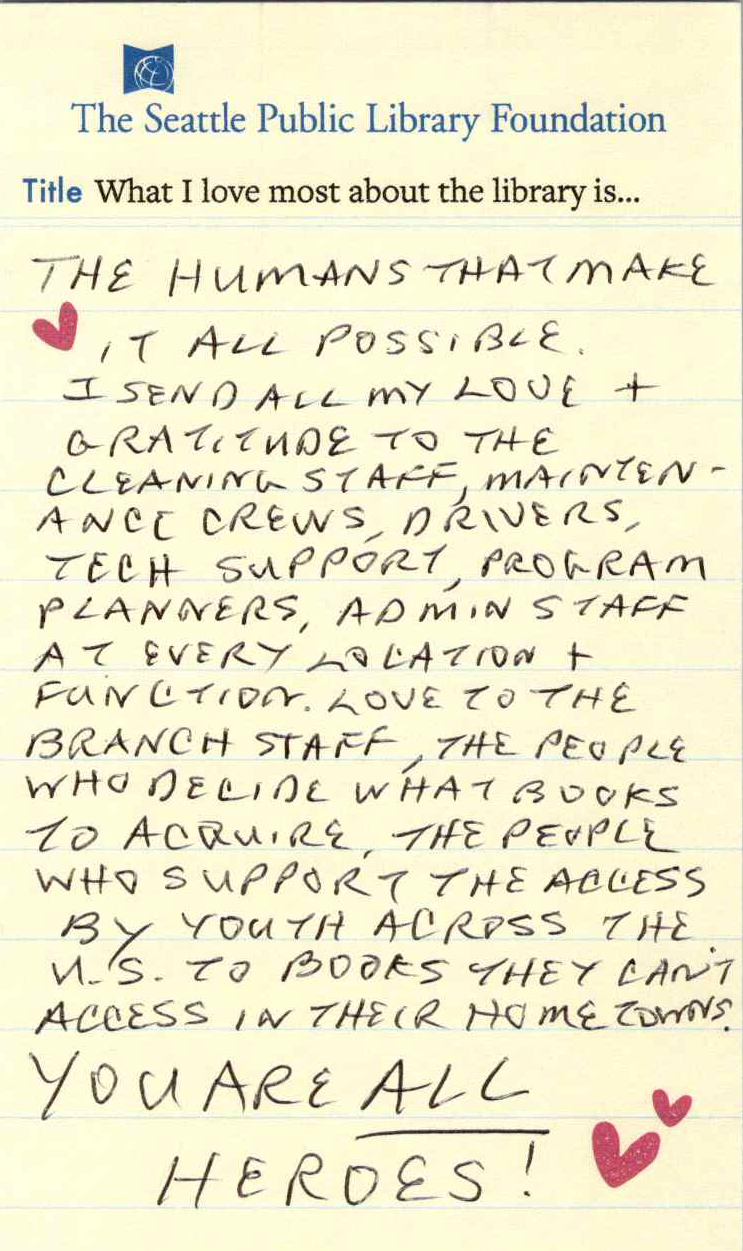 The Seattle Public Library Foundation
Title What I love most about the library is...
THE HUMANS THAT MAKE
IT ALL POSSIBLE.
I SEND ALL MY LOVE +
GRATITUDE TO THE
CLEANING STAFF, MAINTEN-
ANCE CREWS, DRIVERS,
TECH SUPPORT, PROGRAM
PLANNERS, ADMIN STAFF
AT EVERY LOCATION +
FUNCTION. LOVE TO THE
BRANCH STAFF, THE PEOPLE
WHO DECIDE WHAT BOOKS
TO ACQUIRE, THE PEOPLE
WHO SUPPORT THE ACCESS
BY YOUTH ACROSS THE
U.S. TO BOOKS THEY CAN'T
ACCESS IN THEIR HOME TOWNS.
YOU ARE ALL
HEROES!